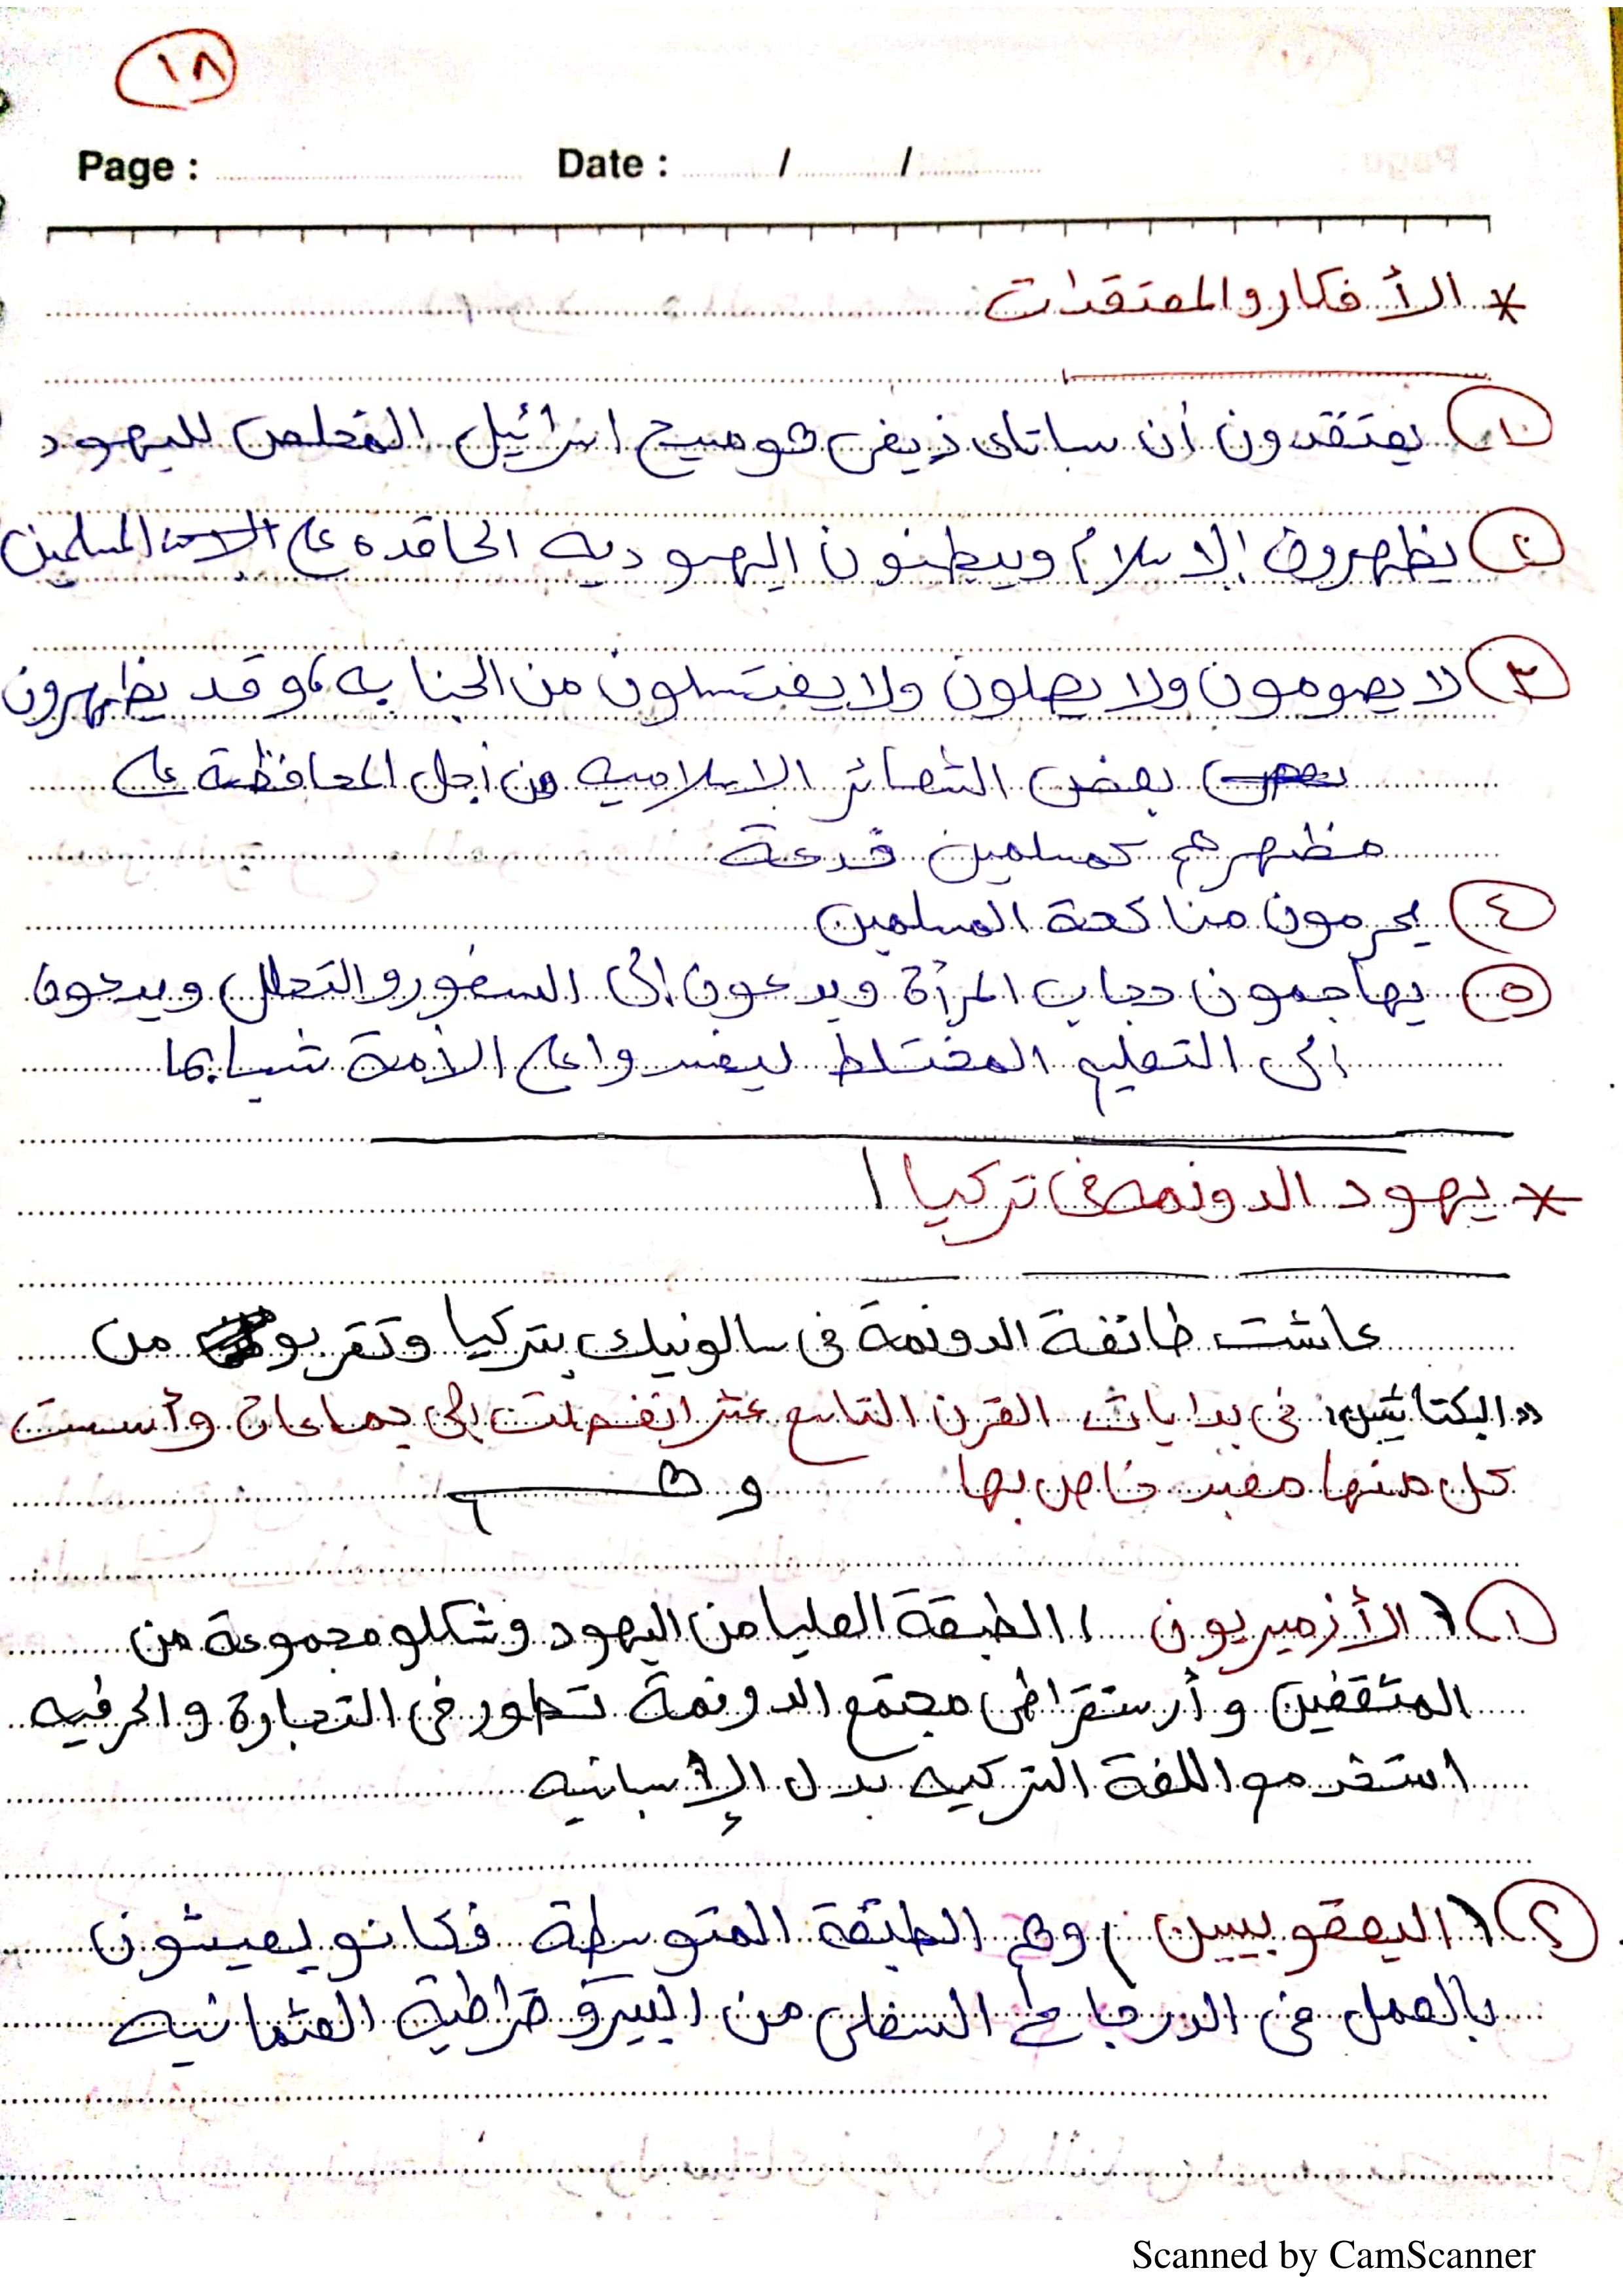 ١٨
Page : Date : / /
* الأفكار والمعتقدات
١ يعتقدون أن ساباتاى زيفى هو مسيح اسرائيل المخلص لليهود
٢ يظهرون الاسلام ويبطنون اليهوديه الحاقده على المسلمين
٣ لا يصومون ولا يصلون ولا يغتسلون من الجنابه، وقد يظهرون
بعض الشعائر الاسلاميه من أجل المحافظة على
مظهرهم كمسلمين خدعة
٤ يحرمون مناكحة المسلمين
٥ يهاجمون حجاب المرأة ويدعون إلى السفور والتحلل ويدعون
الى التعليم المختلط ليفسدوا على الأمة شبابها
* يهود الدونمه فى تركيا /
عاشت طائفة الدونمة فى سالونيك بتركيا وتقربو من
"البكتاشين" فى بدايات القرن التاسع عشر انفصلت إلى جماعات وأسست
كل منها معبد خاص بها وهم
١ ( الأزميريون / الطبقة العليا من اليهود وشكلو مجموعة من
المثقفين وأرستقراطى مجتمع الدونمة تطور فى التجارة والحرفيه
استخدمو اللغة التركيه بدل الإسبانيه
٢ ( اليعقوبيين / وهم الطبقة المتوسطة فكانو يعيشون
بالعمل فى الدرجات السفلى من البيروقراطية العثمانيه
Scanned by CamScanner